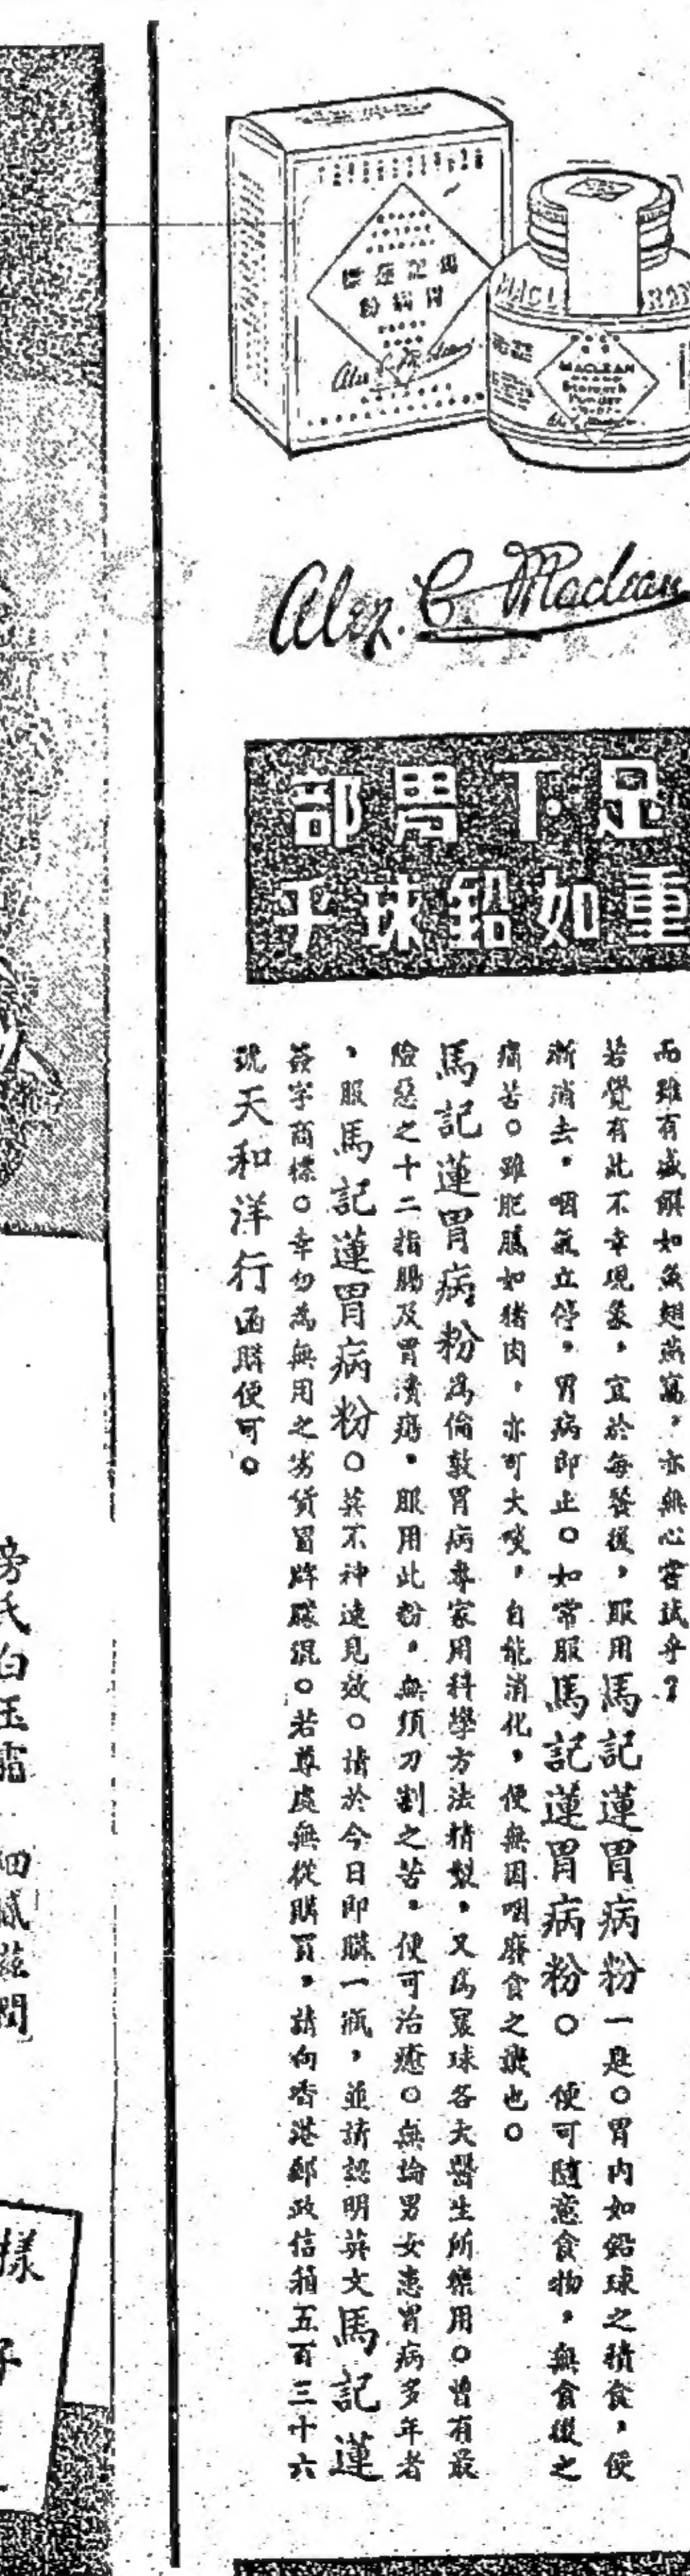 馬記蓮
胃病粉
Alex. C. Maclean
MACLEAN
BRAND
Stomach
Powder
Alex. C. Maclean
足下胃部
重如鉛球乎
而雖有盛饌如魚翅燕窩，亦無心嘗試乎？
若覺有此不幸現象，宜於每餐後，服用馬記蓮胃病粉一匙。胃內如鉛球之積食，便
漸消去，咽氣立停，胃病即止。如常服馬記蓮胃病粉。便可隨意食物，無食後之
痛苦。雖肥膩如猪肉，亦可大啖，自能消化，便無因咽廢食之譏也。
馬記蓮胃病粉爲倫敦胃病專家用科學方法精製，又爲寰球各大醫生所樂用。曾有最
險惡之十二指腸及胃潰瘍，服用此粉，無須刀割之苦，便可治癒。無論男女患胃病多年者
，服馬記蓮胃病粉。莫不神速見效。請於今日即購一瓶，並請認明英文馬記蓮
簽字商標。幸勿為無用之劣貨冒牌矇混。若尊處無從購買，請向香港郵政信箱五百三十六
號天和洋行函購便可。
旁氏白玉霜
細膩滋潤
樣